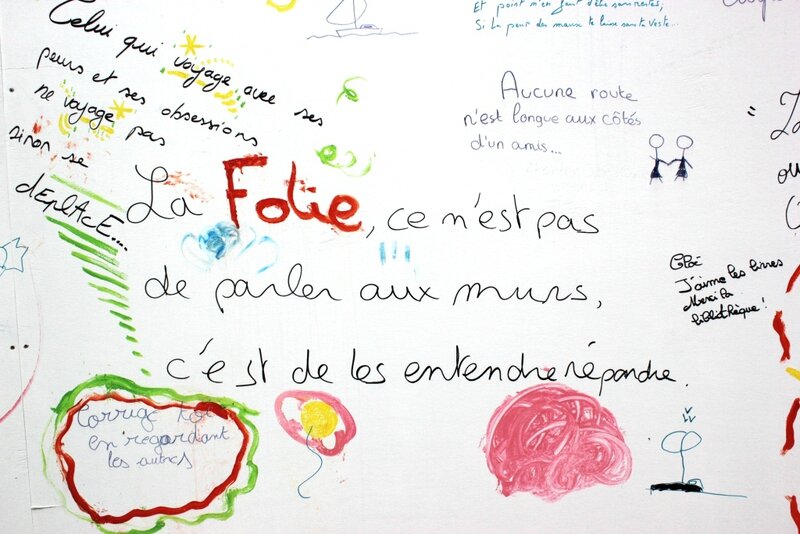 Celui qui voyage avec ses
peurs et ses obsessions
ne voyage pas
sinon se
déplAcE....
Et point m'en faut d'être
Si la peur des maux te laisse sans ta veste...
Aucune route
n'est longue aux côtés
d'un amis...
La Folie, ce n'est pas
de parler aux murs,
c'est de les entendre répondre.
J'aime les livres
Merci la
bibliothèque!
Corrige toi
en regardant
les autres